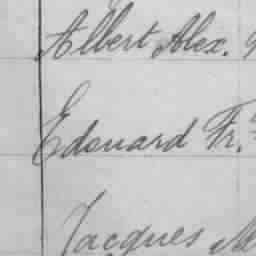 Albert Alex.
Edouard Fr.
Jacques